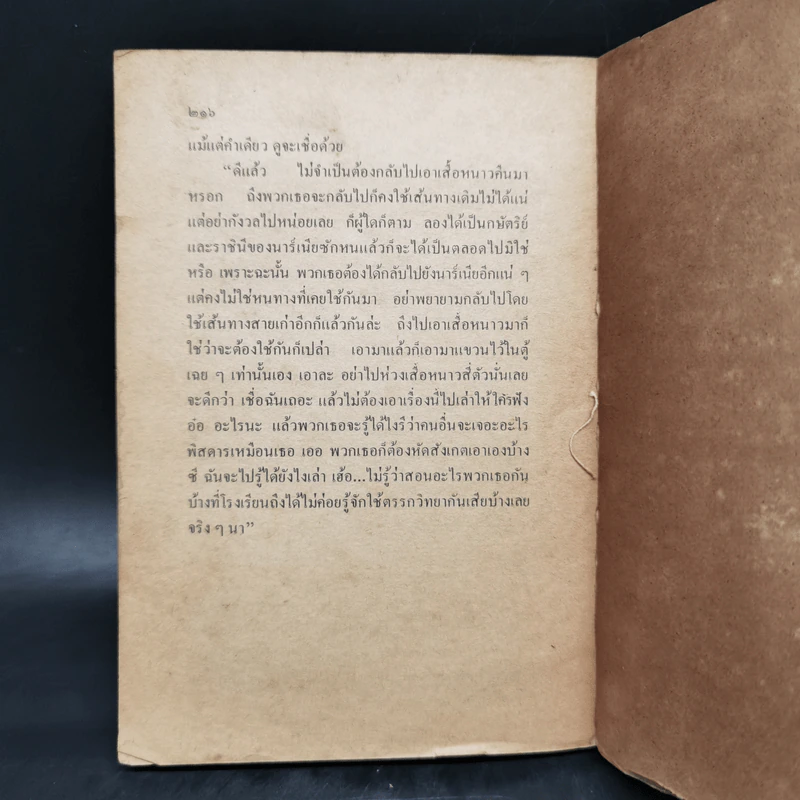 ๒๑๖
แม้แต่คำเดียว ดูจะเชื่อด้วย
“ดีแล้ว ไม่จำเป็นต้องกลับไปเอาเสื้อหนาวคืนมา
หรอก ถึงพวกเธอจะกลับไปก็คงใช้เส้นทางเดิมไม่ได้แน่
แต่อย่ากังวลไปหน่อยเลย ก็ผู้ใดก็ตาม ลองได้เป็นกษัตริย์
และราชินีของนาร์เนียซักหนแล้วก็จะได้เป็นตลอดไปมิใช่
หรือ เพราะฉะนั้น พวกเธอต้องได้กลับไปยังนาร์เนียอีกแน่ ๆ
แต่คงไม่ใช่หนทางที่เคยใช้กันมา อย่าพยายามกลับไปโดย
ใช้เส้นทางสายเก่าอีกก็แล้วกันล่ะ ถึงไปเอาเสื้อหนาวมาก็
ใช่ว่าจะต้องใช้กันก็เปล่า เอามาแล้วก็เอามาแขวนไว้ในตู้
เฉย ๆ เท่านั้นเอง เอาละ อย่าไปห่วงเสื้อหนาวสี่ตัวนั่นเลย
จะดีกว่า เชื่อฉันเถอะ แล้วไม่ต้องเอาเรื่องนี้ไปเล่าให้ใครฟัง
อ๋อ อะไรนะ แล้วพวกเธอจะรู้ได้ไงรึว่าคนอื่นจะเจอะอะไร
พิสดารเหมือนเธอ เออ พวกเธอก็ต้องหัดสังเกตเอาเองบ้าง
ซี ฉันจะไปรู้ได้ยังไงเล่า เฮ้อ...ไม่รู้ว่าสอนอะไรพวกเธอกัน
บ้างที่โรงเรียนถึงได้ไม่ค่อยรู้จักใช้ตรรกวิทยากันเสียบ้างเลย
จริง ๆ นา”